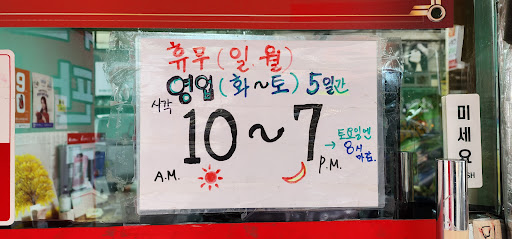 휴무(일.월)
영업(화~토) 5일간
시각
10~7
A.M.
P.M.
토요일엔
→ 8시
마감.
미세요
SH